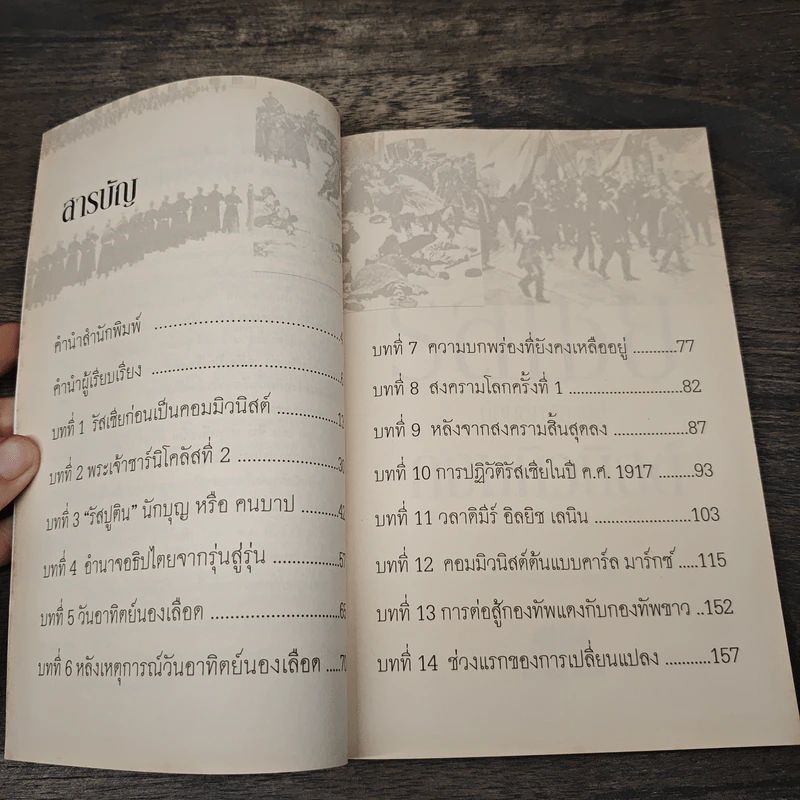 สารบัญ
คำนำสำนักพิมพ์ ..............................
คำนำผู้เรียบเรียง ..............................
บทที่ 1 รัสเซียก่อนเป็นคอมมิวนิสต์ ............
บทที่ 2 พระเจ้าซาร์นิโคลัสที่ 2 ..................
บทที่ 3 “รัสปูติน” นักบุญ หรือ คนบาป .........
บทที่ 4 อำนาจอธิปไตยจากรุ่นสู่รุ่น ............
บทที่ 5 วันอาทิตย์นองเลือด ......................
บทที่ 6 หลังเหตุการณ์วันอาทิตย์นองเลือด .....
บทที่ 7 ความบกพร่องที่ยังคงเหลืออยู่ ...........77
บทที่ 8 สงครามโลกครั้งที่ 1 ......................82
บทที่ 9 หลังจากสงครามสิ้นสุดลง ..............87
บทที่ 10 การปฏิวัติรัสเซียในปี ค.ศ. 1917 ........93
บทที่ 11 วลาดิมีร์ อิลยิช เลนิน ...................103
บทที่ 12 คอมมิวนิสต์ต้นแบบคาร์ล มาร์กซ์ .....115
บทที่ 13 การต่อสู้กองทัพแดงกับกองทัพขาว ..152
บทที่ 14 ช่วงแรกของการเปลี่ยนแปลง ...........157